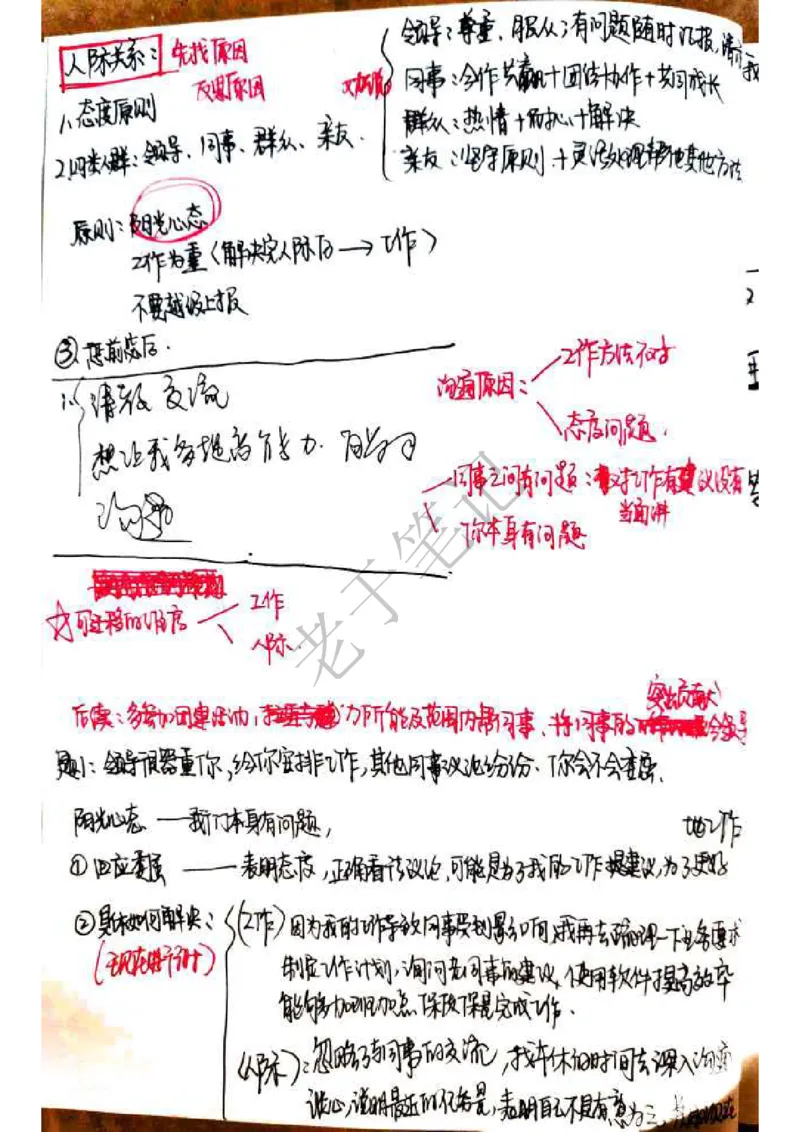 人际关系：先找原因
反思原因
1、态度原则
2、四类人群：领导、同事、群众、亲友.
领导：尊重、服从；有问题随时汇报，请
同事：合作共赢+团结协作+共同成长
群众：热情+耐心+解决
亲友：坚守原则+灵活处理帮他其他方法
原则：阳光心态
工作为重（解决完人际后→工作）
不要越级上报
③思前虑后.
沟通原因：工作方法不对
态度问题.
1、请教交流
想让我多提高能力
沟通
同事之间有问题：对工作有建议没有
当面讲
你本身有问题
☆可迁移的语言 工作
人际.
后续：多参加团建活动，力所能及范围内帮同事、将同事的突出贡献
题1：领导很器重你，给你安排工作，其他同事议论纷纷、你会不会委屈.
阳光心态 — 我们本身有问题，
①回应委屈 —— 表明态度，正确看待议论，可能是为了我的工作提建议，为了更好
地工作
②具体如何解决：
（工作）因为我的工作导致同事受到影响，我再去梳理一下任务要求
制定工作计划，询问老同事的建议，使用软件提高效率
能够加班加点、保质保量完成工作.
（人际）：忽略了与同事的交流，找午休的时间去深入沟通
谈心，说明最近的任务量，表明自己不是有意为之，